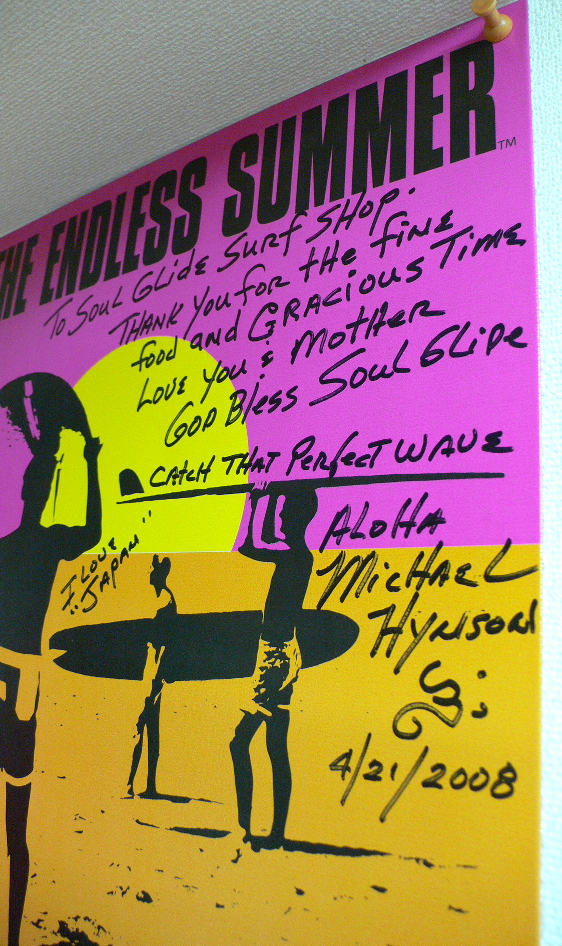 THE ENDLESS SUMMER™
To Soul Glide Surf Shop.
THANK You for the fine
food and Gracious Time
Love You & Mother
God Bless Soul Glide
CATCH THAT Perfect WAVE
ALOHA
"I LOVE
JAPAN"
MicHAEL
HYNSON
4/21/2008